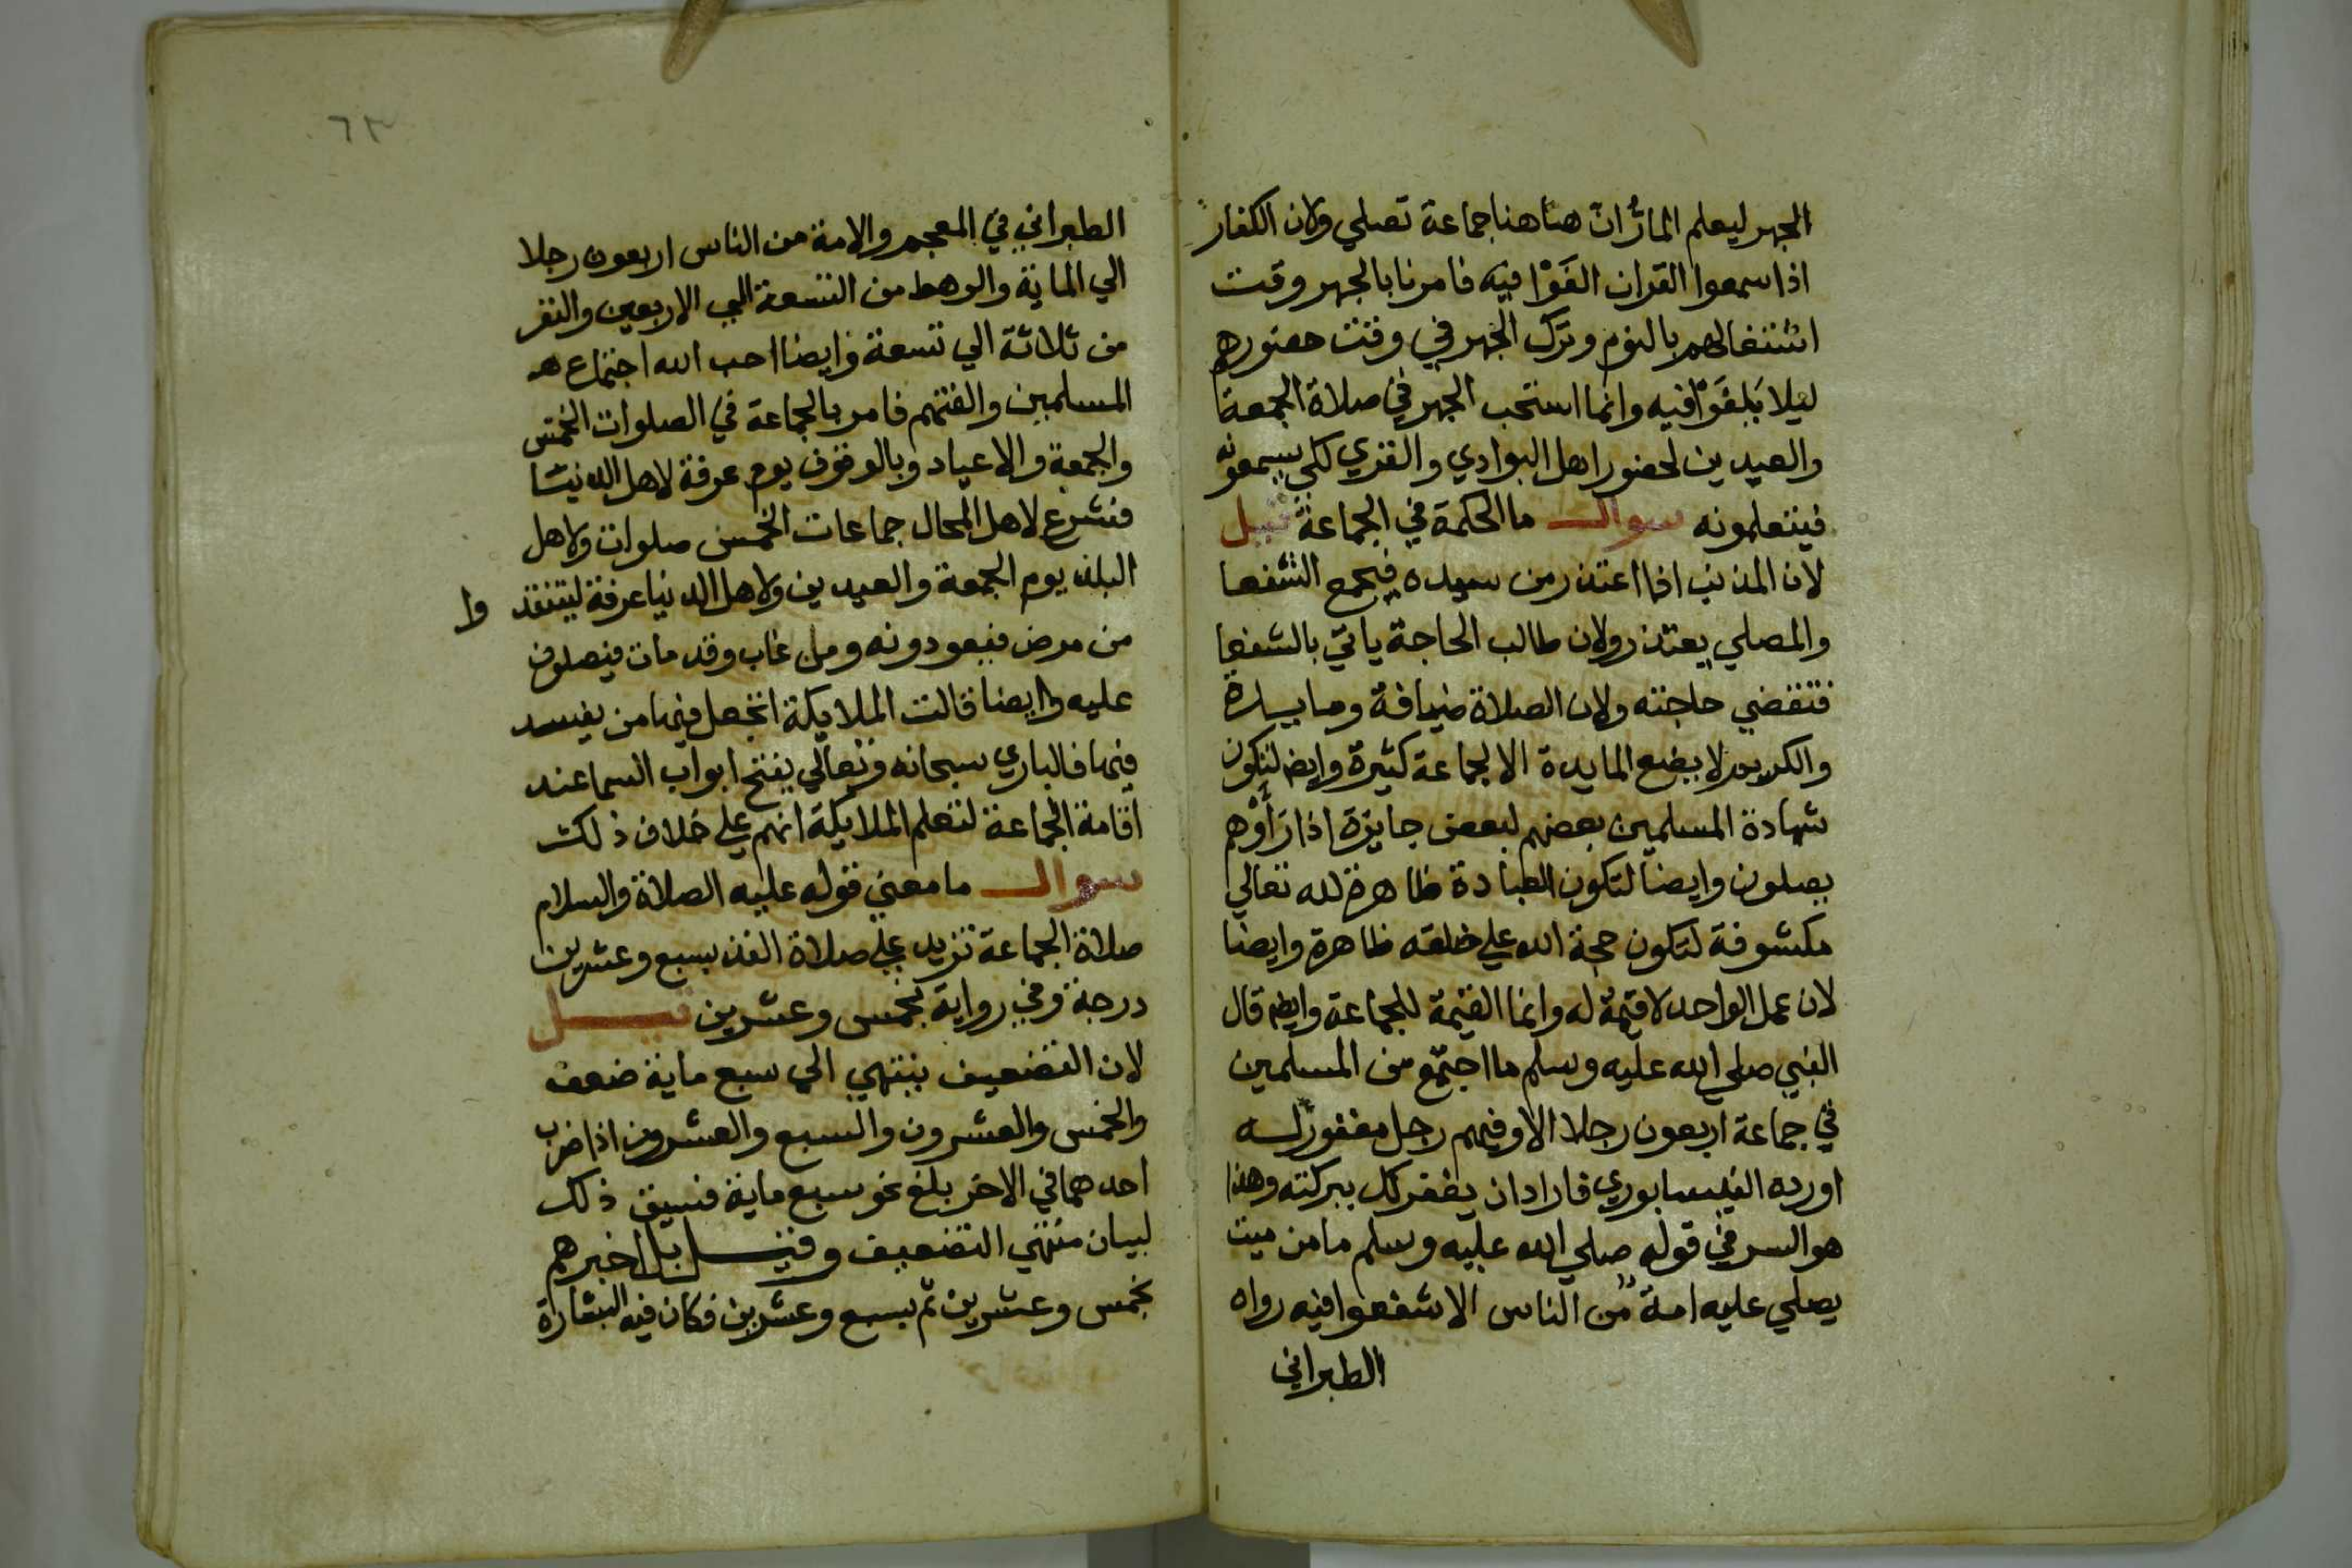 الجهر ليعلم المارّ انّ هنا هنا جماعة تصلي ولان الكفار
اذا سمعوا القران الغَوْا فيه فامرنا بالجهر وقت
اشتغالهم بالنوم وترك الجهر في وقت حضورهم
ليلا يَلغَوْا فيه وانما استحب الجهر في صلاة الجمعة
والعيدين لحضور اهل البوادي والقري لكي يسمعونه
فيتعلمونه سوال ما الحكمة في الجماعة قيل
لان المذنب اذا اعتذر من سيده فيجمع الشفعا
والمصلي يعتذر ولان طالب الحاجة ياتي بالشفعا
فتقضي حاجته ولان الصلاة ضيافة ومايدة
والكريم لا يضع المايدة الا لجماعة كثيرة وايضا لتكون
شهادة المسلمين بعضهم لبعض جايزة اذا رَأَوْهم
يصلون وايضا لتكون العبادة ظاهرة لله تعالي
مكشوفة لتكون حجة الله علي خلقه ظاهرة وايضا
لان عمل الواحد لا قيمة له وانما القيمة للجماعة وايضا قال
النبي صلي الله عليه وسلم ما اجتمع من المسلمين
في جماعة اربعون رجلا الا وفيهم رجل مغفور له
اورده النيسابوري فاراد ان يغفر لكل ببركته وهذا
هو السر في قوله صلي الله عليه وسلم ما من ميت
يصلي عليه امة من الناس الا شفعوا فيه رواه
الطبراني
٦٣
الطبراني في المعجم والامة من الناس اربعون رجلا
الي الماية والرهط من التسعة الي الاربعين والنفر
من ثلاثة الي تسعة وايضا احب الله اجتماع
المسلمين والفتهم فامر بالجماعة في الصلوات الخمس
والجمعة والاعياد وبالوقوف يوم عرفة لاهل الدنيا
فشرع لاهل المحال جماعات الخمس صلوات ولاهل
البلد يوم الجمعة والعيدين ولاهل الدنيا عرفة ليتفقدوا
من مرض فيعودونه ومن غاب وقد مات فيصلون
عليه وايضا قالت الملايكة اتجعل فيها من يفسد
فيها فالباري سبحانه وتعالي يفتح ابواب السما عند
اقامة الجماعة لتعلم الملايكة انهم علي خلاف ذلك
سوال ما معني قوله عليه الصلاة والسلام
صلاة الجماعة تزيد علي صلاة الفذ بسبع وعشرين
درجة وفي رواية بخمس وعشرين قيل
لان التضعيف ينتهي الي سبع ماية ضعف
والخمس والعشرون والسبع والعشرون اذا ضرب
احدهما في الاخر بلغ نحو سبع ماية فسيق ذلك
لبيان منتهي التضعيف وقيل بل اخبرهم
بخمس وعشرين ثم بسبع وعشرين فكان فيه البشارة